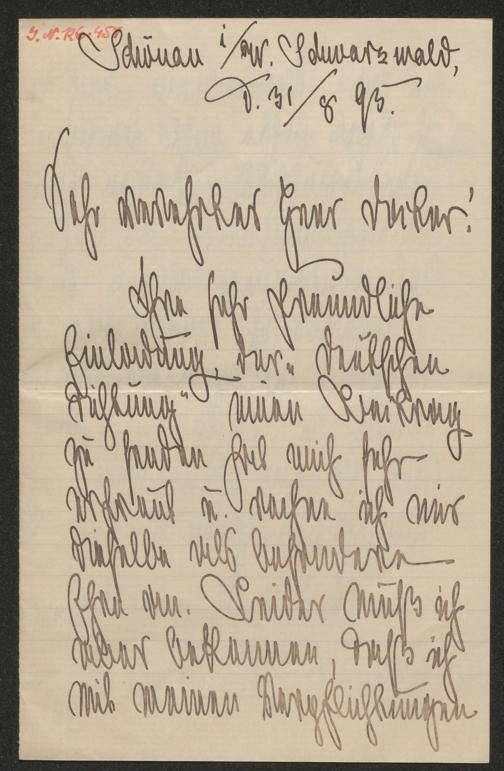 J.N.R6.451
Schönau i/W. Schwarzwald,
d. 31/8 95.
Sehr verehrter Herr Doctor!
Ihre sehr freundliche
Einladung, der „Deutschen
Dichtung" einen Beitrag
zu senden hat mich sehr
erfreut u. rechne ich mir
dieselbe als besondere
Ehre an. Leider muß ich
aber bekennen, daß ich
mit meinen Verpflichtungen